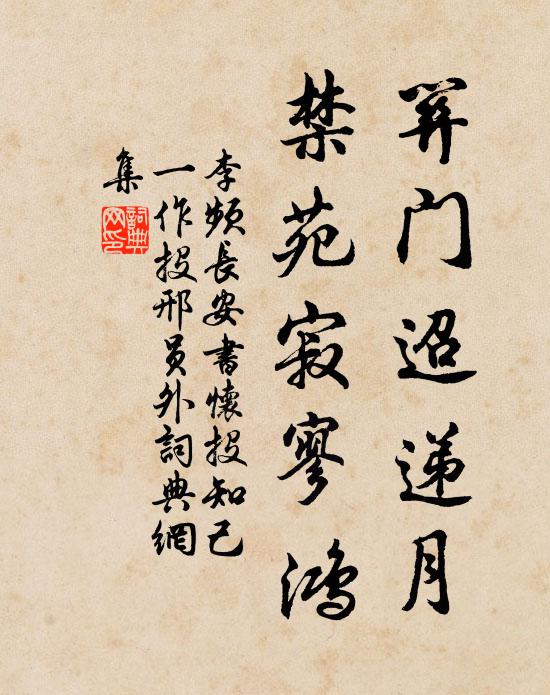 关门迢遞月
禁苑寂寥鴻
李頻長安書懷投知己
一作投邢員外詞典網
集
詞典
网印